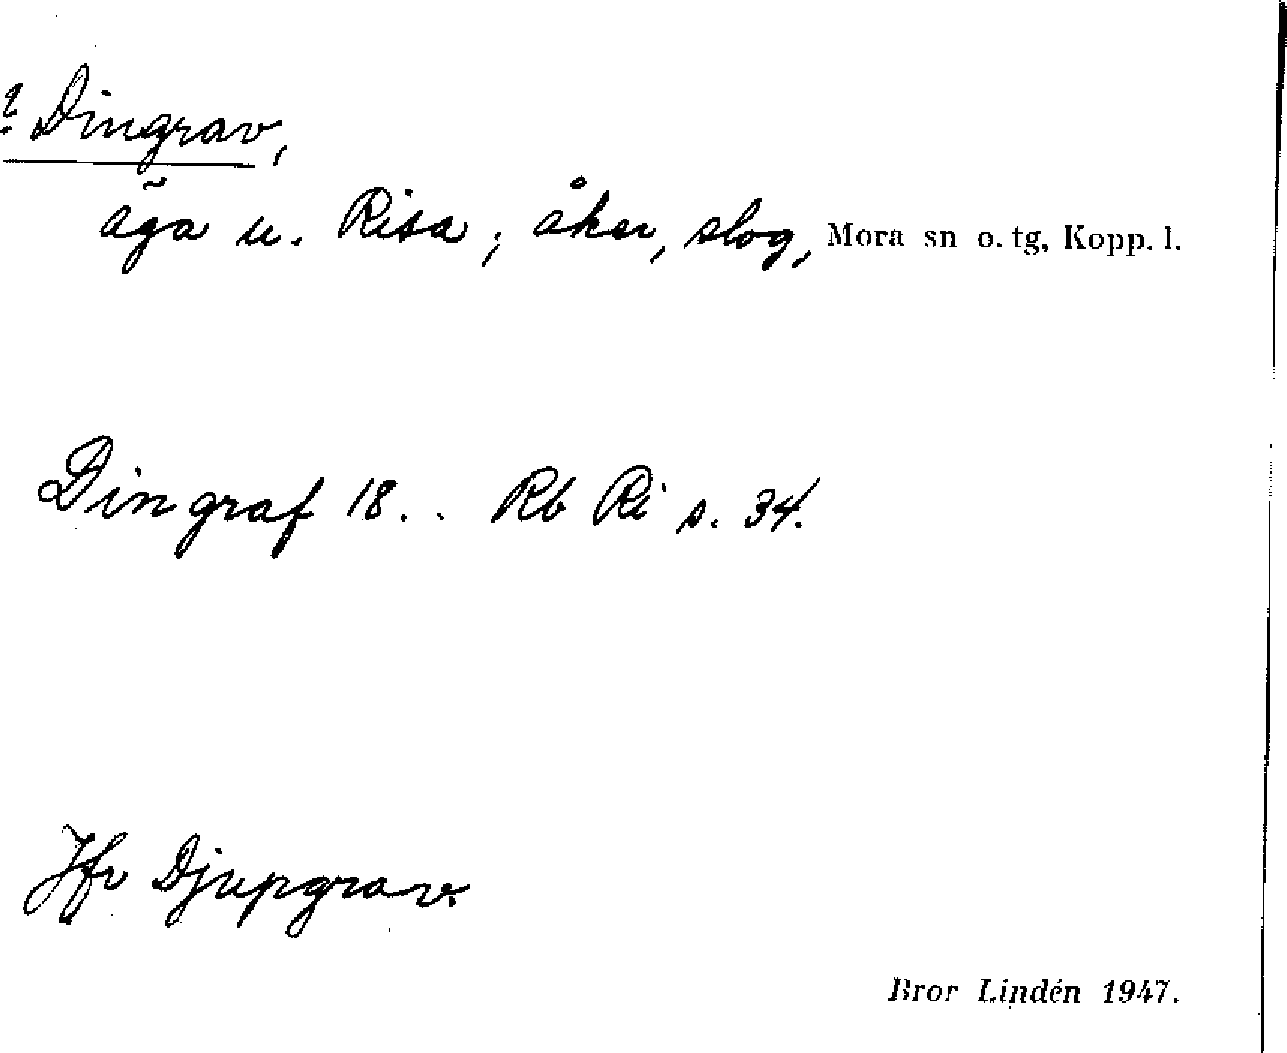 ? Dingrav,
äga u. Risa; åker, slog, Mora sn o. tg, Kopp. l.
Dingraf 18.. Rb Ri s. 34.
Jfr Djupgrav.
Bror Lindén 1947.